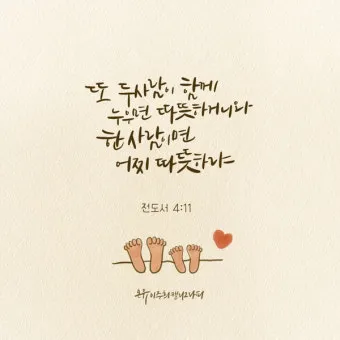 또 두사람이 함께
누우면 따뜻하거니와
한 사람이면
어찌 따뜻하랴
전도서 4:11